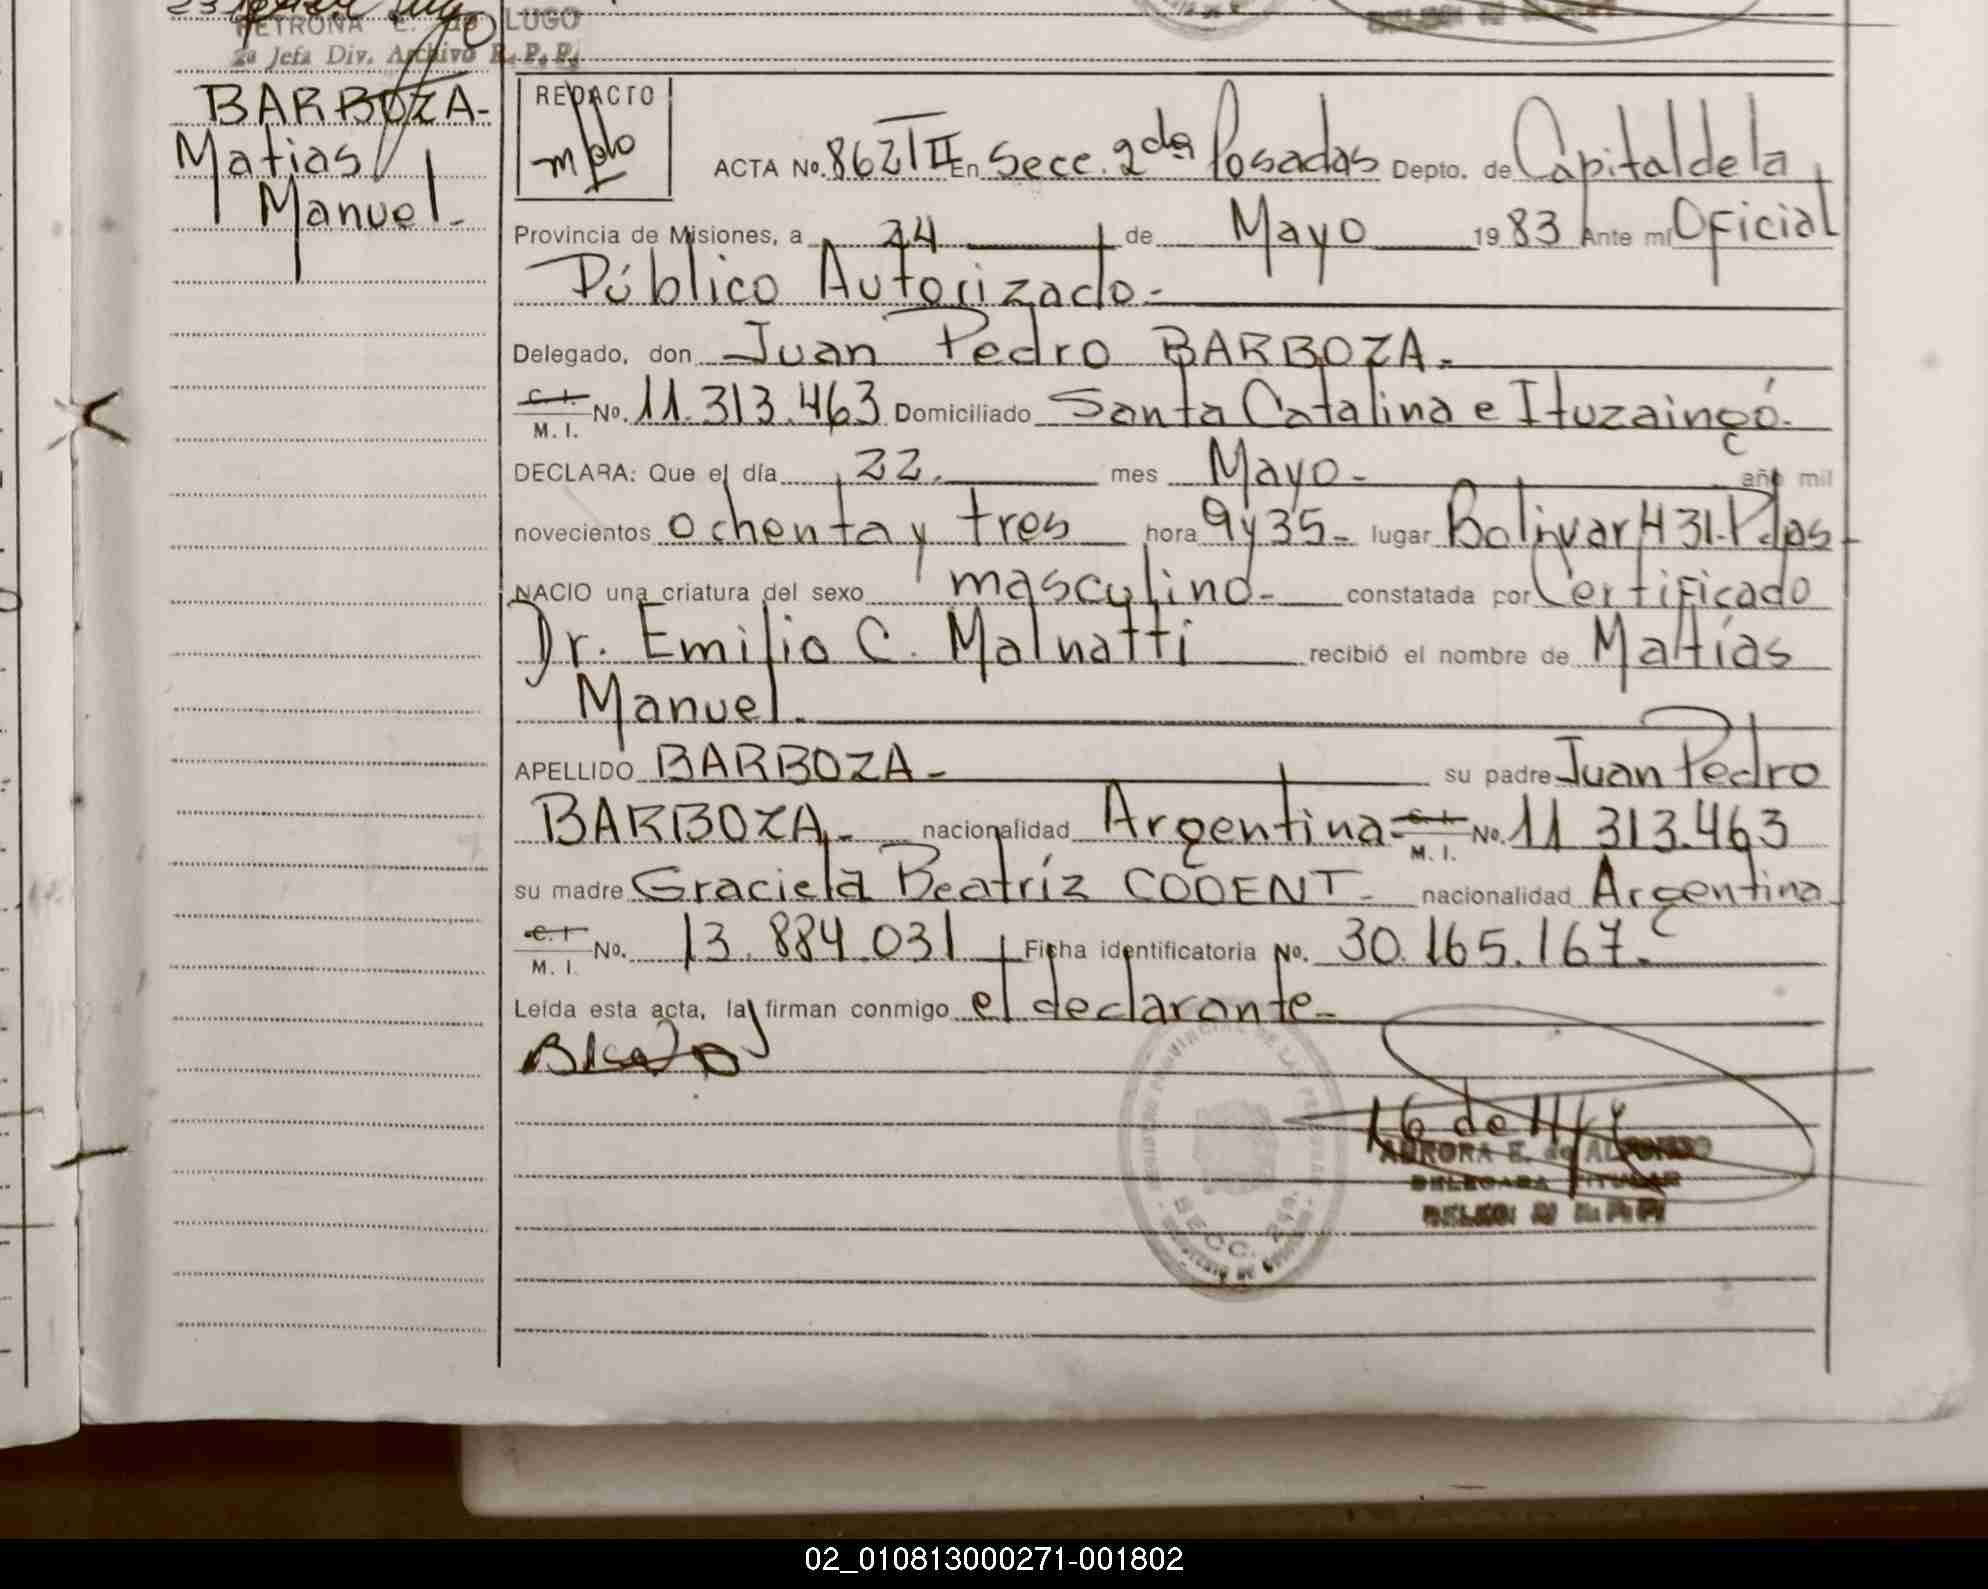 PETRONA E. de LUGO
2ª Jefa Div. Archivo R. P. P.
BARBOZA-
Matias
Manuel-
REDACTO
ACTA No. 862 T II En Secc. 2da Posadas Depto. de Capital de la
Provincia de Misiones, a 24 de Mayo 1983 Ante mí Oficial
Público Autorizado-
Delegado, don Juan Pedro BARBOZA-
C. I.
M. I. No. 11.313.463 Domiciliado Santa Catalina e Ituzaingó.
DECLARA: Que el día 22. mes Mayo- año mil
novecientos ochenta y tres hora 9 y 35- lugar Bolivar 431. Pdas-
NACIO una criatura del sexo masculino- constatada por Certificado
Dr. Emilio C. Malnatti recibió el nombre de Matías
Manuel.
APELLIDO BARBOZA- su padre Juan Pedro
BARBOZA- nacionalidad Argentina- C. I.
M. I. No. 11 313.463
su madre Graciela Beatríz CODENT- nacionalidad Argentina
C. I.
M. I. No. 13.884.031 Ficha identificatoria No. 30.165.167-
Leída esta acta, la firman conmigo el declarante-
SECC. 2da.
AURORA E. de ALFONSO
DELEGADA TITULAR
02_010813000271-001802